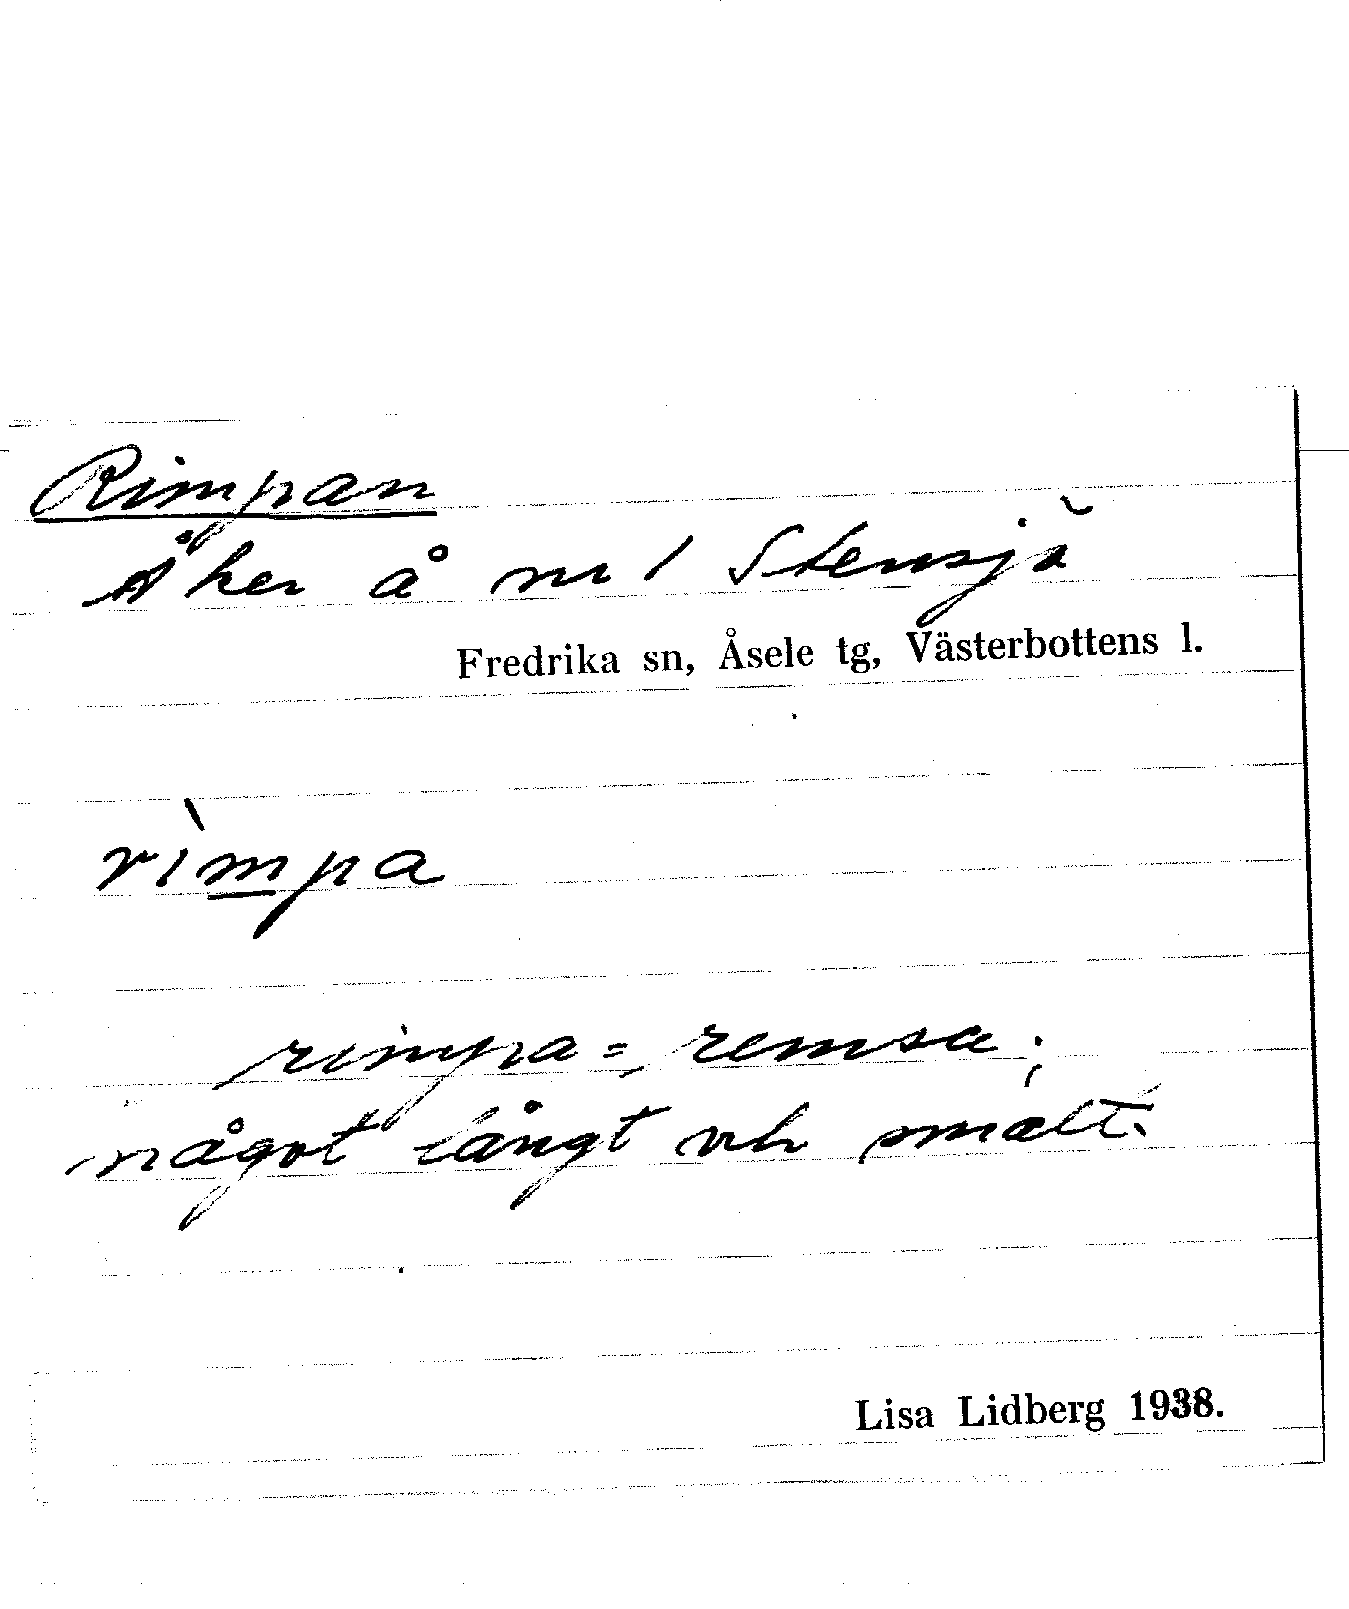 Rimpan
Åker å nr 1 Stensjö
Fredrika sn, Åsele tg, Västerbottens l.
rìmpa
rimpa = remsa;
något långt och smalt.
Lisa Lidberg 1938.